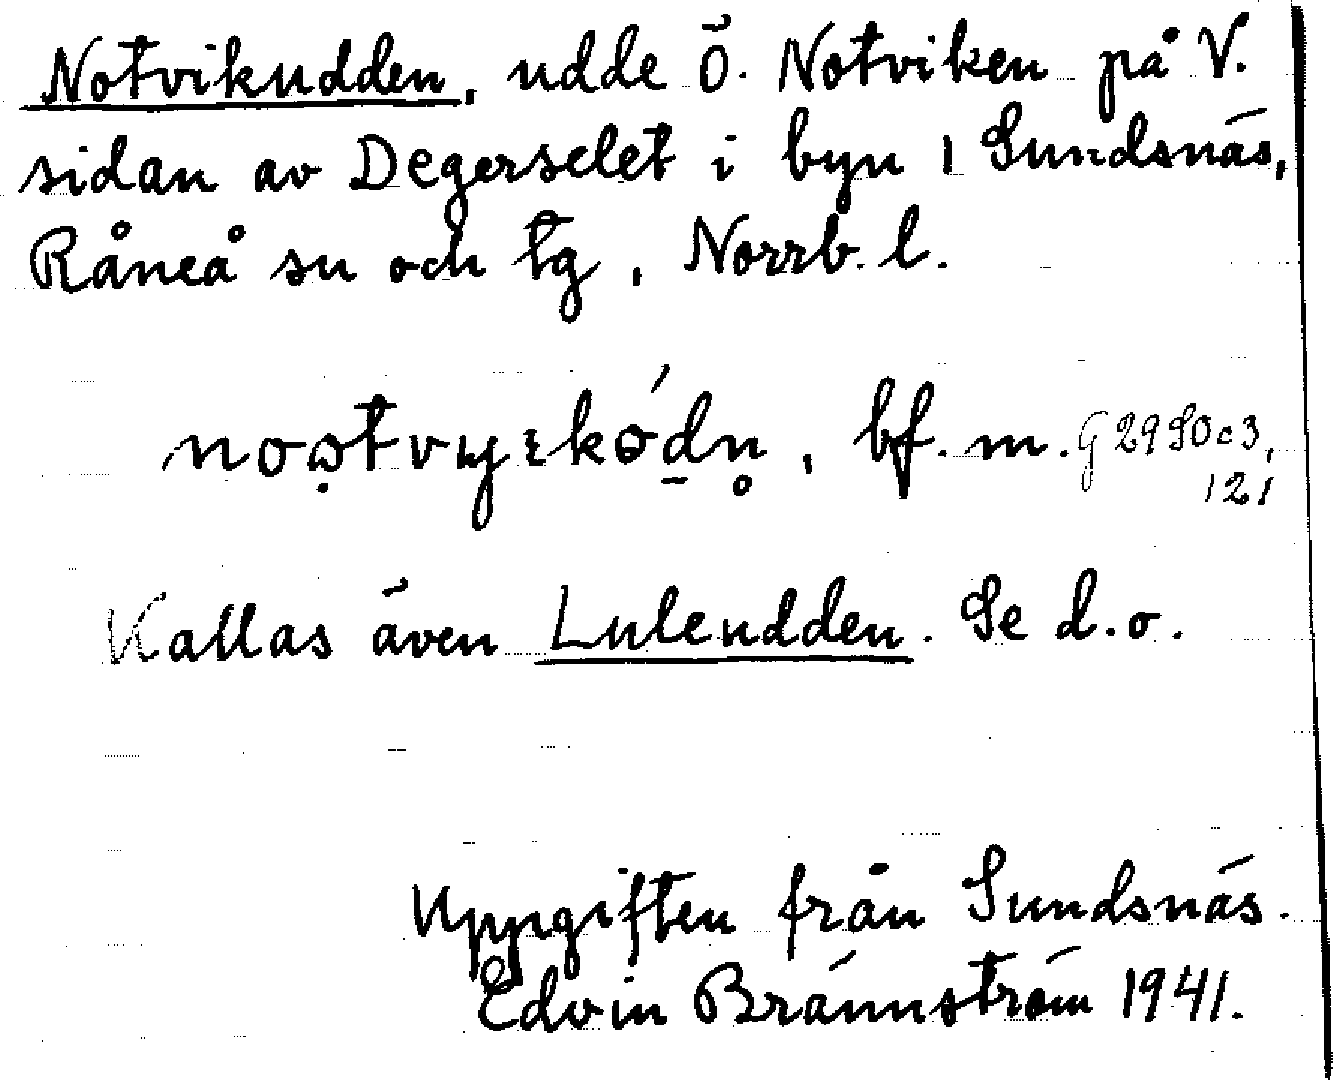 Notvikudden, udde Ö. Notviken på V.
sidan av Degerselet i byn 1 Sundsnäs,
Råneå sn och tg, Norrb. l.
bf. m. G 2950c3,
121
Kallas även Luleudden. Se d.o.
Uppgiften från Sundsnäs.
Edvin Brännström 1941.